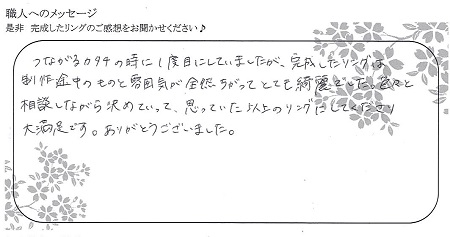 職人へのメッセージ
是非 完成したリングのご感想をお聞かせください♪
つながるカタチの時に1度目にしていましたが、完成したリングは
制作途中のものと雰囲気が全然ちがってとても綺麗でした。色々と
相談しながら決めていって、思っていた以上のリングにしてくださり
大満足です。ありがとうございました。